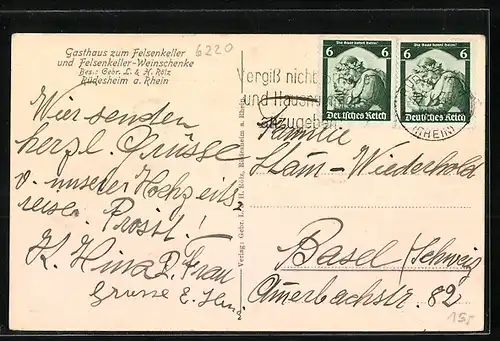 Gasthaus zum Felsenkeller
und Felsenkeller-Weinschenke
Bes.: Gebr. L. & H. Rölz
Rüdesheim a. Rhein
6220
Wir senden
herzl. Grüsse
v. unserer Hochzeits
reise. Prosst!
K. & Frau
Grüsse E.
Verlag: Gebr. L. & H. Rölz, Rüdesheim a. Rhein.
Vergiß nicht
und Hausnummer
anzugeben
6
6
Die Saar kehrt heim!
Deutsches Reich
6
6
Die Saar kehrt heim!
Deutsches Reich
(RHEIN)
Familie
Stam-Wiederhold
Basel (Schweiz
Amerbachstr. 82
155